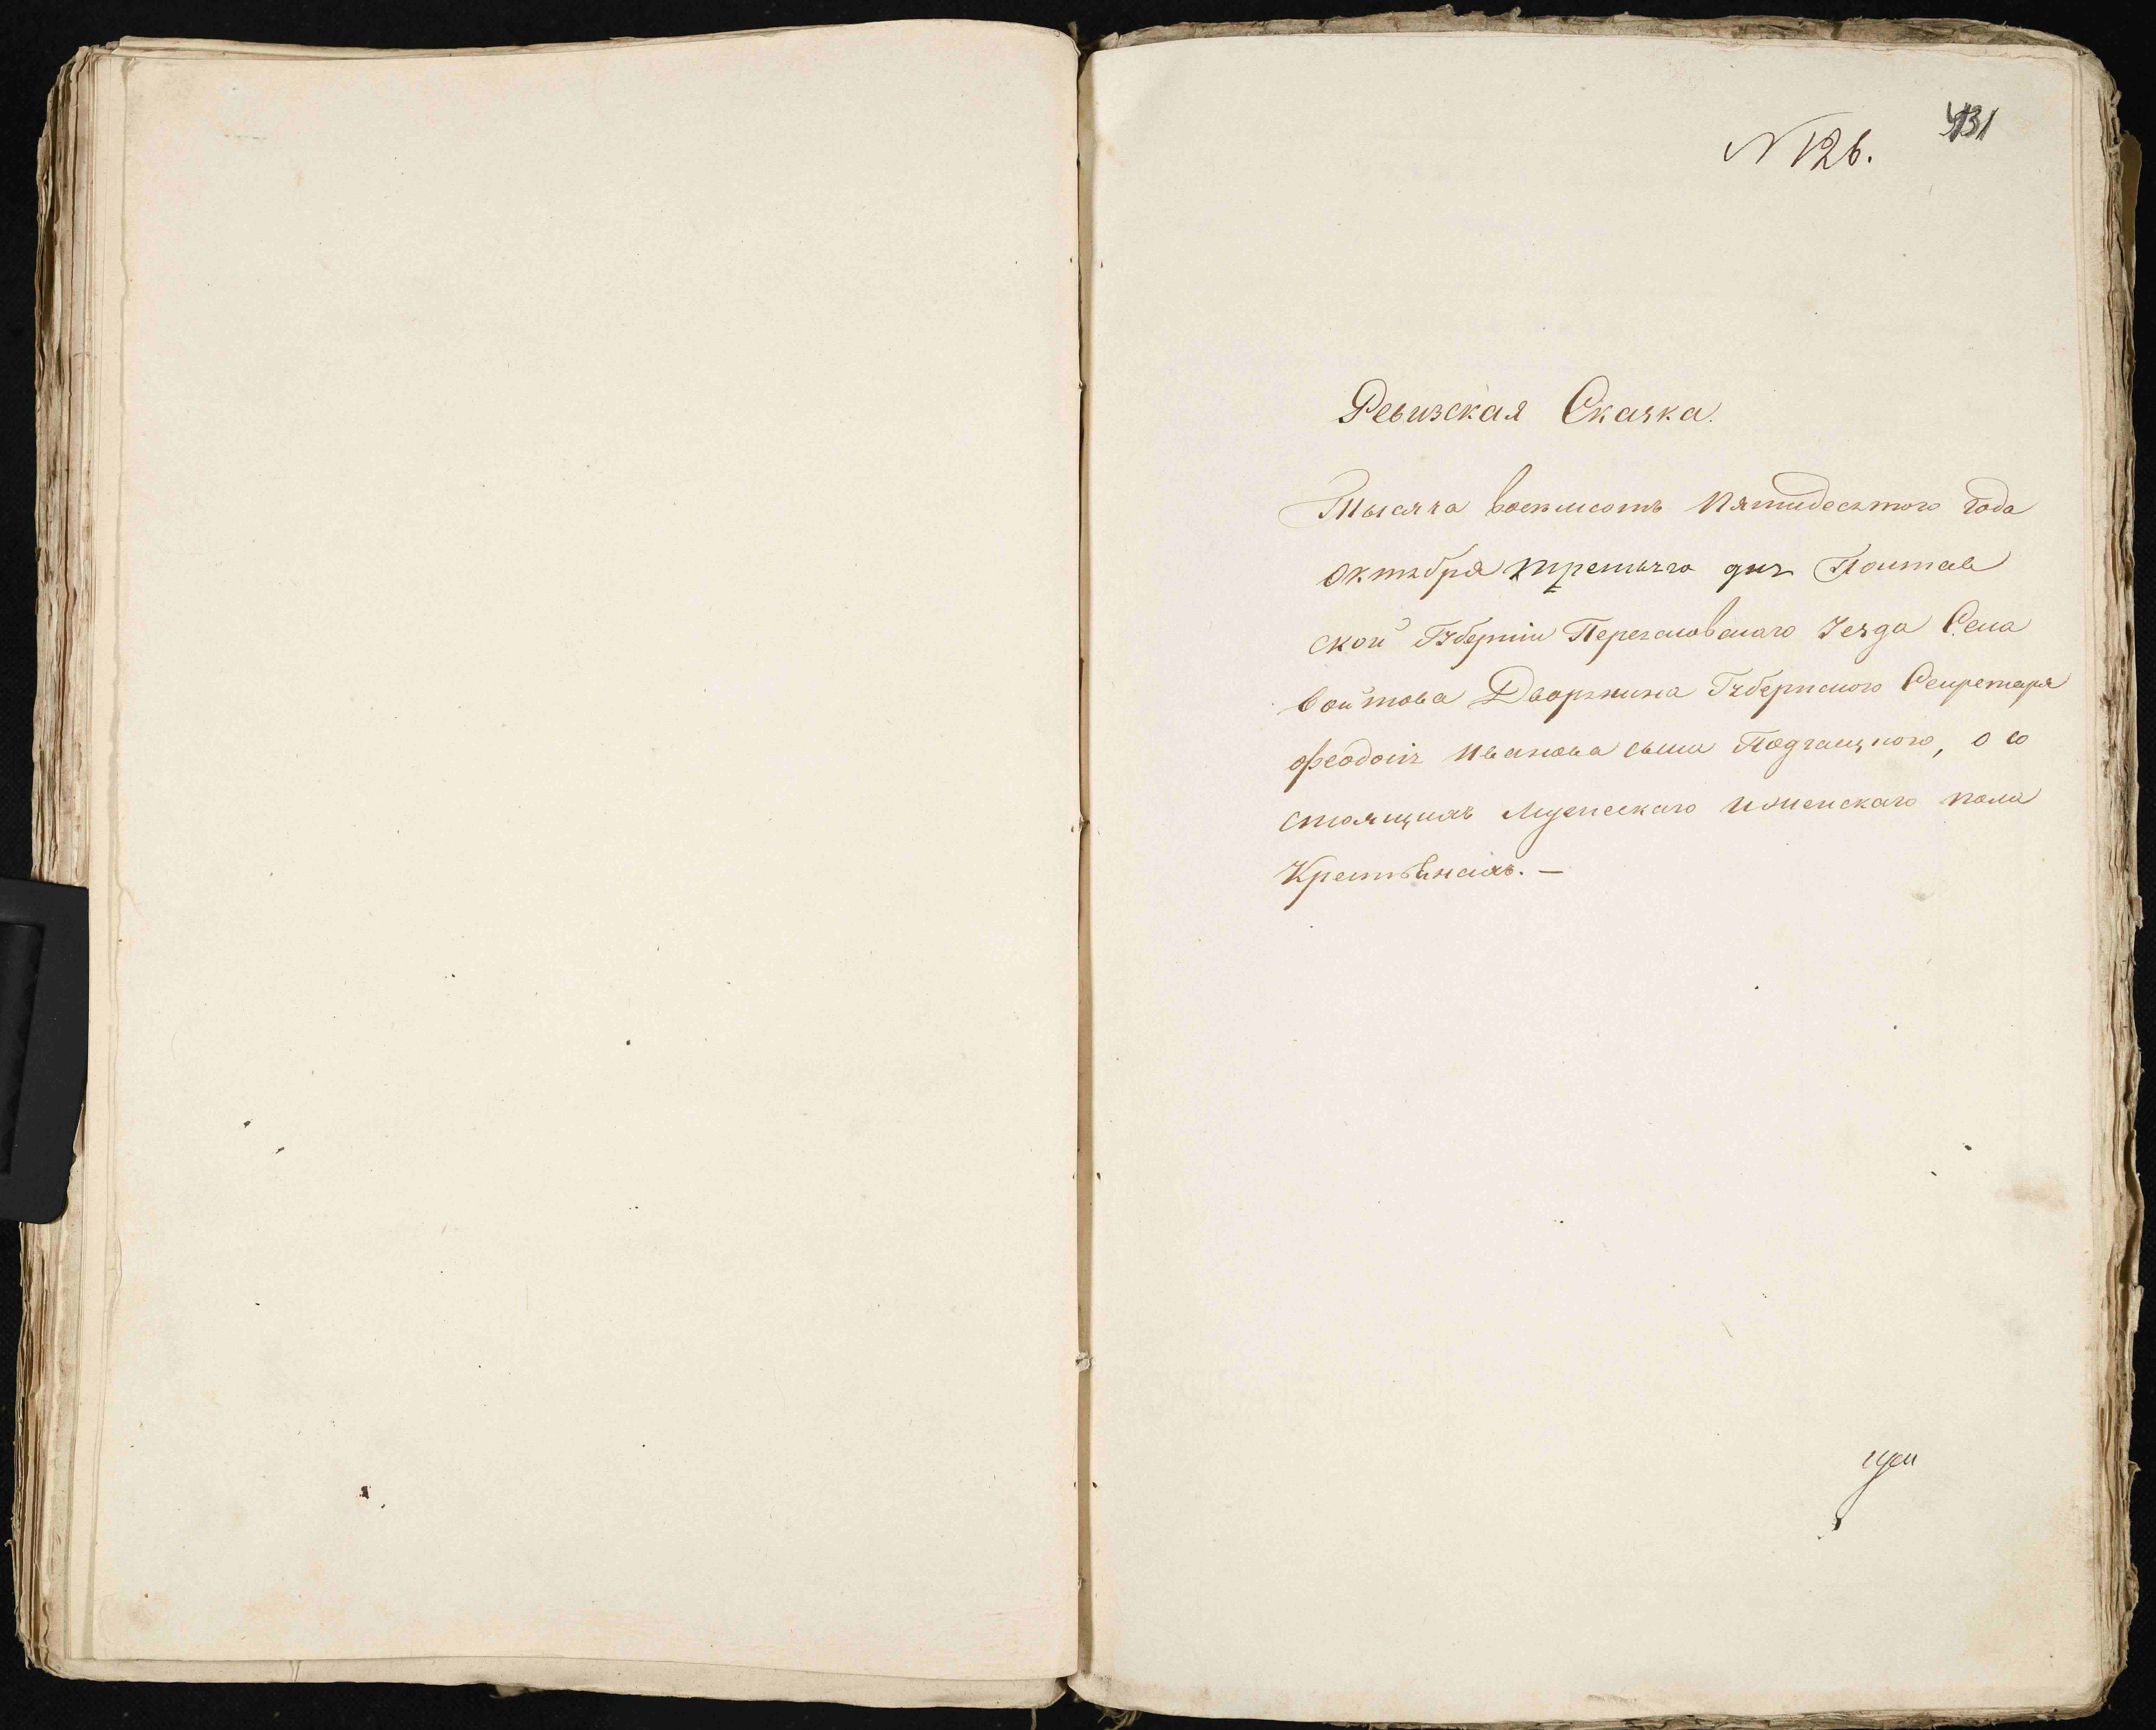 431
N 126.
Ревизская Сказка.
Тысяча восемсотъ Пятидесятого года
Октября третьяго дня Полтав
ской Губерніи Переяславскаго Уезда Села
войтова Дворянина Губернского Секретаря
Феодосія Иванова сына Подгаецкого, о со
стоящихъ мужескаго и женскаго пола
Крестьянахъ. —